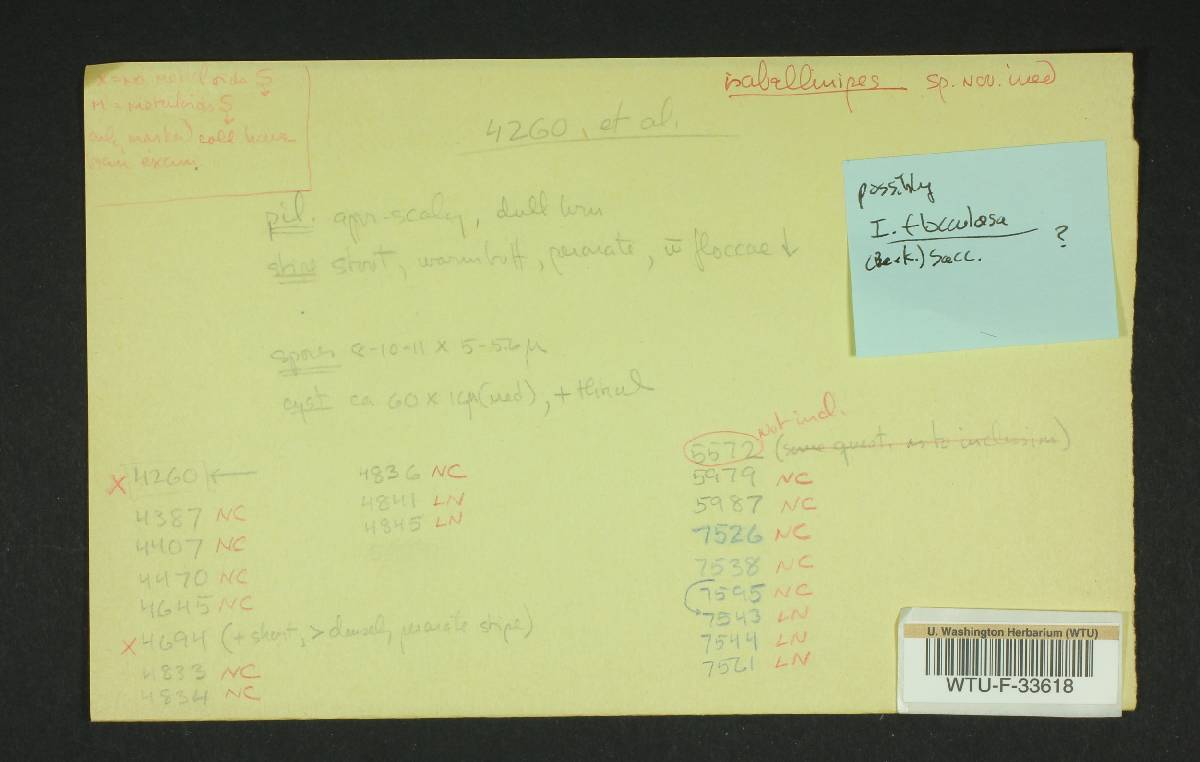 X = no metuloids
M = metuloids
only marked coll have
been exam.
isabellinipes sp. nov. ined
4260, et al.
pil. appr-scaly, dull brn
stipe stout, warm buff, peronate, w̄ floccae ↓
possibly
I. flocculosa
(Berk.) Sacc. ?
spores 8-10-11 x 5-5.6 µ
cyst ca 60 x 16µ(med), + thinwl
Not incl.
X 4260 ←
4387 NC
4407 NC
4470 NC
4645 NC
X 4694 (+ short, > densely peronate stipe)
4833 NC
4834 NC
4836 NC
4841 LN
4845 LN
5572 (some quest. as to inclusion)
5979 NC
5987 NC
7526 NC
7538 NC
7595 NC
7543 LN
7544 LN
7561 LN
U. Washington Herbarium (WTU)
WTU-F-33618